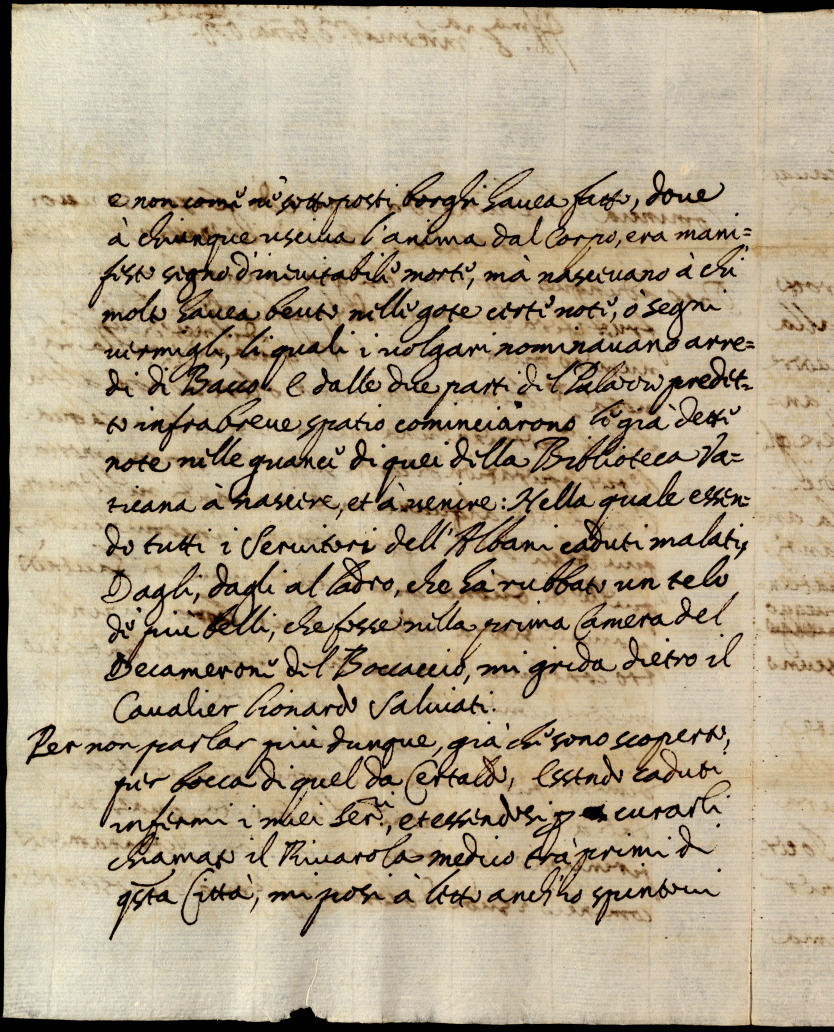 e non come ne' sottoposti borghi havea fatto, dove
à chiunque usciva l'anima dal Corpo, era mani=
festo segno d'inevitabile morte, mà nascevano à chi
molto havea bevuto nelle gote certe note, ò segni
vermigli, li quali i volgari nominavano arre=
di di Bacco. E dalle due parti del Palazzo predet=
to infra breve spatio cominciarono le già dette
note nelle guancie di quei della Biblioteca Va=
ticana à nascere, et à venire: Nella quale essen=
do tutti i Servitori dell'Albani caduti malati,
Dagli, dagli al ladro, che hà rubbato un telo
de' più belli, che fosse nella prima Camera del
Decamerone del Boccaccio, mi grida dietro il
Cavalier Lionardo Salviati.
Per non parlar più dunque, già che sono scoperto,
per bocca di quel da Certaldo, Essendo caduti
infermi i miei Serri, et essendosi p curarli
chiamato il Rivarola medico trà primi di
qsta Città, mi posi à letto anch'io